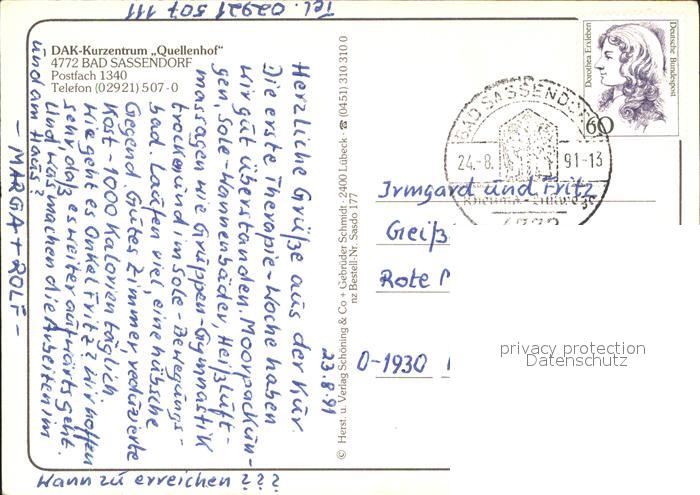 Tel. 02921 507 111
DAK-Kurzentrum „Quellenhof"
4772 BAD SASSENDORF
Postfach 1340
Telefon (02921) 507-0
Herzliche Grüße aus der Kur.
Die erste Therapie-Woche haben
wir gut überstanden. Moorpackun-
gen, Sole-Wannenbäder, Heißluft-
massagen wie Gruppen-Gymnastik
trocken und im Sole-Bewegungs-
bad. Laufen viel, eine hübsche
Gegend. Gutes Zimmer, reduzierte
Kost - 1000 Kalorien täglich.
Wie geht es Onkel Fritz? Wir hoffen
sehr, daß es weiter aufwärts geht.
Und was machen die Arbeiten im
und am Haus?
- MARGA + ROLF -
Wann zu erreichen ???
23.8.91
© Herst. u. Verlag Schöning & Co + Gebrüder Schmidt · 2400 Lübeck · ☎ (0451) 310 310 0
nz Bestell-Nr. Sasdo 177
Dorothea Erxleben
Deutsche Bundespost
60
BAD SASSENDORF
24.-8. 91-13
Irmgard und Fritz
Geiß
Rote
D-1930
privacy protection
Datenschutz